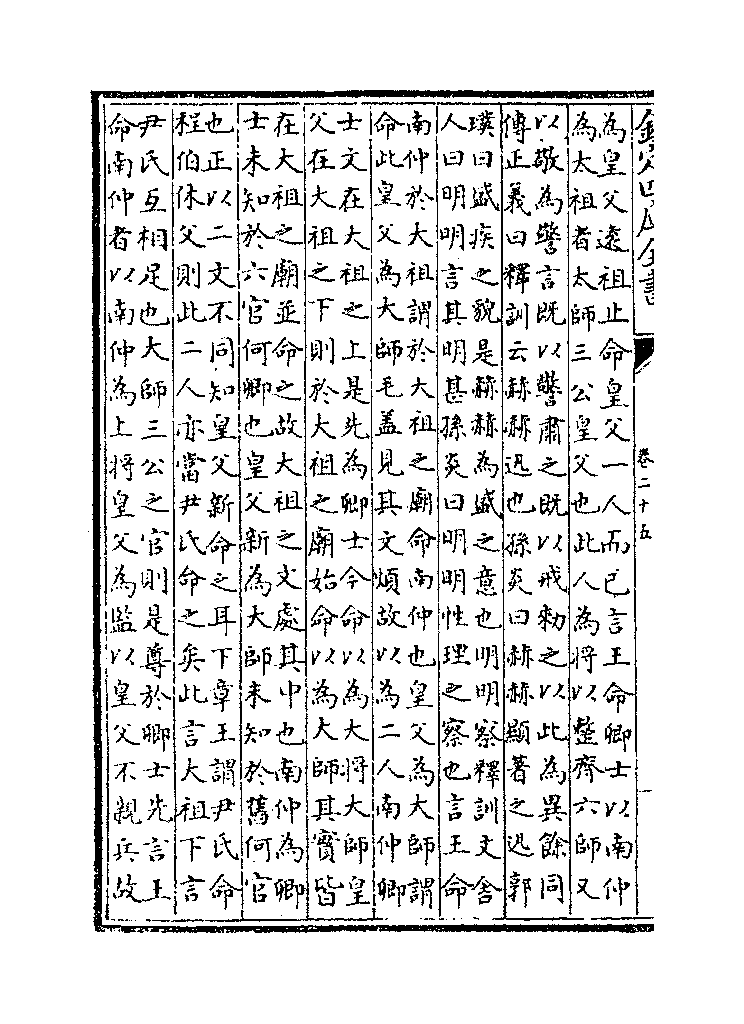 欽定四庫全書
卷二十五
為皇父遠祖止命皇父一人而已言王命卿士以南仲
為太祖者太師三公皇父也此人為將以整齊六師又
以敬為警言既以警肅之既以戒勑之以此為異餘同
傳正義曰釋訓云赫赫迅也孫炎曰赫赫顯著之迅郭
璞曰盛疾之貌是赫赫為盛之意也明明察釋訓文舍
人曰明明言其明甚孫炎曰明明性理之察也言王命
南仲於大祖謂於大祖之廟命南仲也皇父為大師謂
命此皇父為大師毛盖見其文煩故以為二人南仲卿
士文在大祖之上是先為卿士今命以為大將大師皇
父在大祖之下則於大祖之廟始命以為大師其實皆
在大祖之廟並命之故大祖之文處其中也南仲為卿
士未知於六官何卿也皇父新為大師未知於舊何官
也正以二文不同知皇父新命之耳下章王謂尹氏命
程伯休父則此二人亦當尹氏命之矣此言大祖下言
尹氏互相足也大師三公之官則是尊於卿士先言王
命南仲者以南仲為上將皇父為監以皇父不親兵故